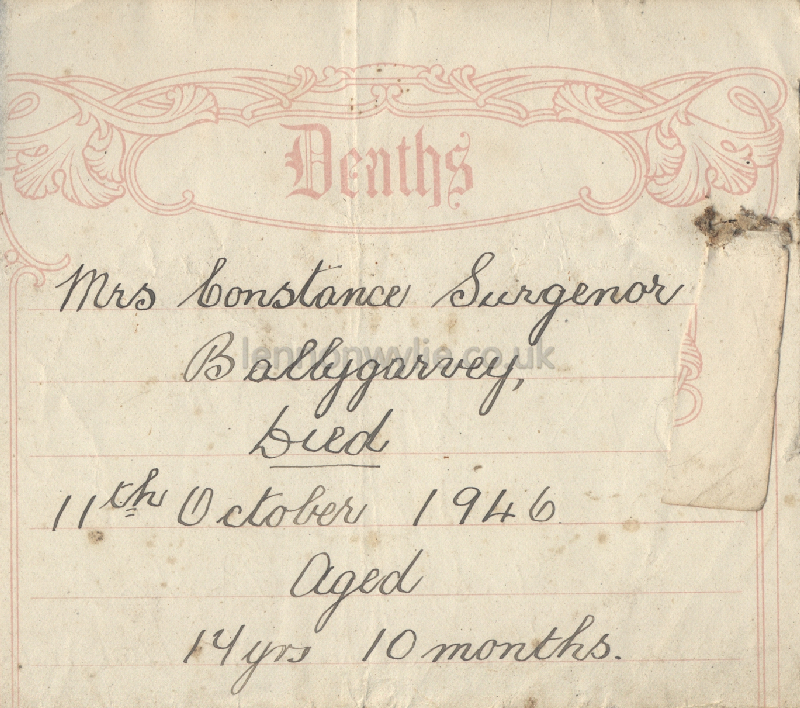 Deaths
Mrs Constance Surgenor
lennonwylie.co.uk
Ballygarvey,
Died
11th October 1946
Aged
14 yrs 10 months.